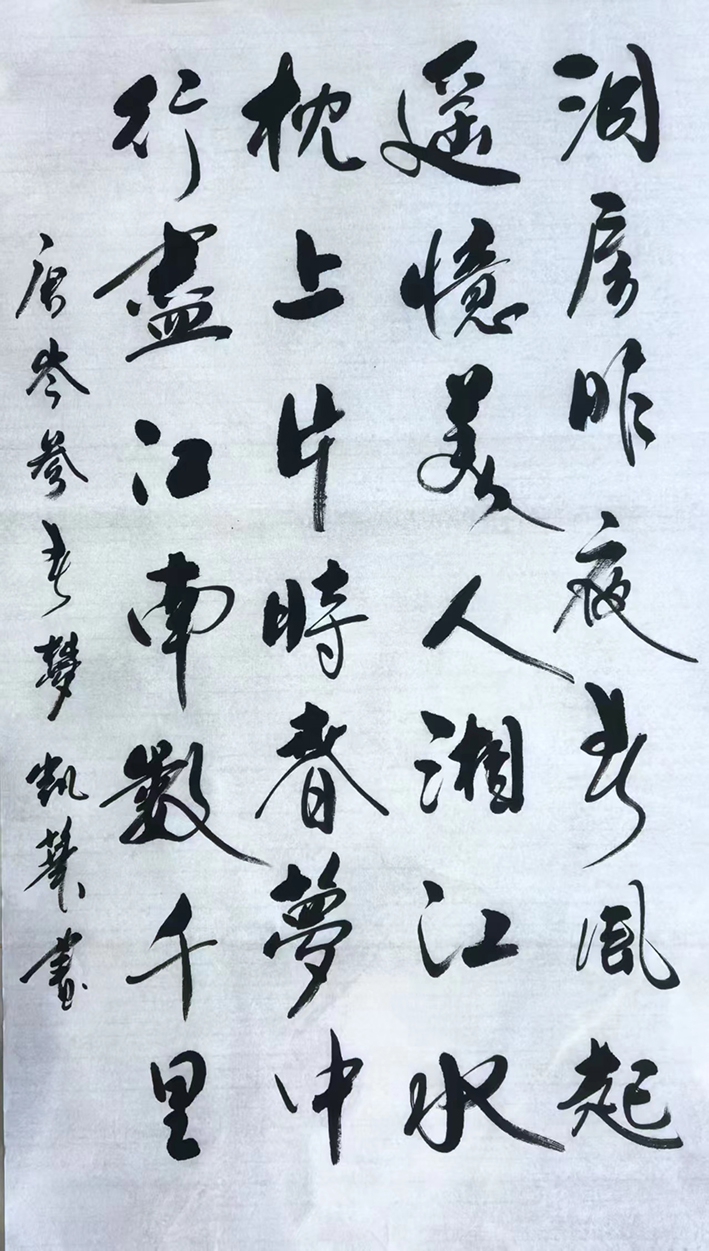 洞房昨夜春风起
遥憶美人湘江水
枕上片時春夢中
行盡江南数千里
唐岑参春夢凯華書